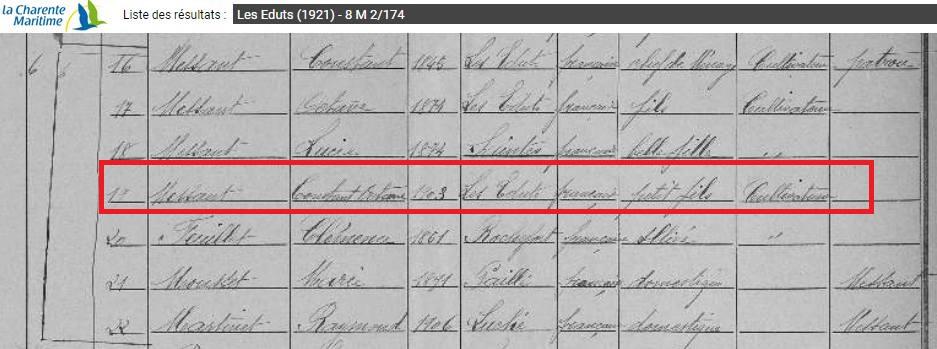 la Charente
Maritime
Liste des résultats : Les Eduts (1921) - 8 M 2/174
6 6 16 Messant Constant 1845 Les Eduts français chef de ménage Cultivateur patron
17 Messant Octave 1874 Les Eduts français fils Cultivateur
18 Messant Lucie 1874 française belle fille "
Messant Constant Octave 1903 Les Eduts français petit fils Cultivateur
20 Feuillet Clémence 1861 Rochefort française "
21 Mousset 1891 français domestique Messant
22 Martinet Raymond 1906 Luché français domestique Messant